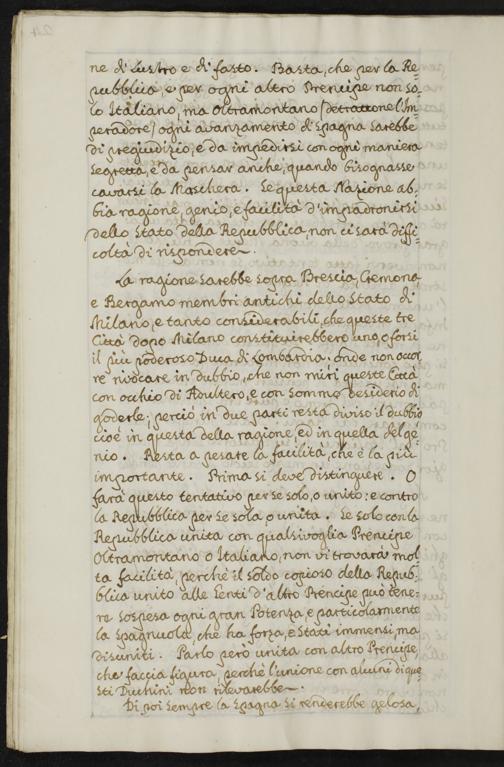 ne di Lustro e di fasto. Basta, che per la Re-
pubblica, e per ogni altro Prencipe non so-
lo Italiano, ma Oltramontano (detrattone l'Im-
peradore) ogni avanzamento di Spagna sarebbe
di pregiudizio, e da impedirsi con ogni maniera
segretta, e da pensar anche, quando bisognasse
cavarsi la Maschera. Se questa Nazione ab-
bia ragione, genio, e facilità d'impadronirsi
dello Stato della Repubblica, non ci sarà diffi-
coltà di rispondere.
La ragione sarebbe sopra Brescia, Cremona,
e Bergamo membri antichi dello Stato di
Milano, e tanto considerabili, che queste tre
Città dopo Milano constituirebbero uno, e forsi
il più poderoso Duca di Lombardia. Onde non occor
re rivocare in dubbio, che non miri queste Città
con occhio di Adultero, e con sommo desiderio di
goderle; perciò in due parti resta diviso il dubbio
cioè in questa della ragione, ed in quella del gé
nio. Resta a pesare la facilità, che è la più
importante. Prima si deve distinguere. O
farà questo tentativo per se solo, o unito: e contro
la Repubblica per se sola, o unita. Se solo con la
Repubblica unita con qualsivoglia Prencipe
Oltramontano o Italiano, non vi trovarà mol
ta facilità, perché il soldo copioso della Repub-
blica unito alle Genti d'altro Prencipe può tene-
re sospesa ogni gran Potenza, e particolarmente
la Spagnuola, che ha forza, e Stati immensi, ma
disuniti. Parlo però unita con altro Prencipe,
che faccia figura, perché l'unione con alcuni di que
sti Duchini non rilevarebbe.
Di poi sempre la Spagna si renderebbe gelosa,